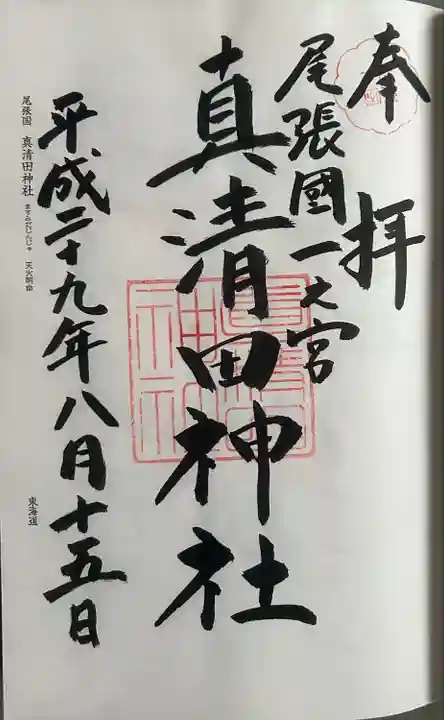 奉拝
尾張國一之宮
真清田神社
平成二十九年八月十五日
尾張国 真清田神社 ますみだじんじゃ 天火明命
東海道